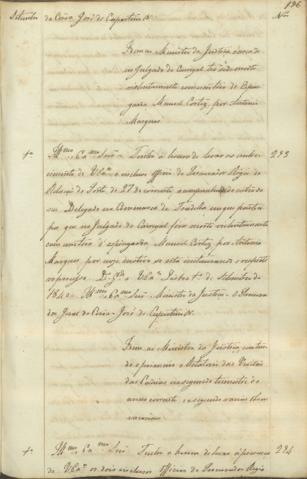 196
Setembro da Coroa José de Cupertino &.
Nos
Para o Ministro da Justiça ácerca de
no Julgado de Carrazal ter sido morto
voluntariamente com um tiro de Espin-
garda Manoel Cortez, por Antonio
Marques
+ Illmo e Exmo Senr. Tenho a honra de levar ao conhe- 283
cimento de V. Exa o incluso officio do Procurador Regio da
Relação do Porto de 27 do corrente acompanhando outro do
seu Delegado na Commarca de que participa
pa que no Julgado de Carrazal fora morto voluntariamente
com um tiro d'espingarda Manoel Cortez, por Antonio
Marques, por cujo motivo se está instaurando o respecti-
vo processo. Ds. Gde. a V. Exa Lisboa 1º de Setembro de
1840 Illmo e Exmo Senr. Ministro da Justiça. O Procura-
dor Geral da Coroa José de Cupertino &.
Para o Ministro da Justiça,
o processo e Relatorio das Visitas
das Cadeias no segundo trimestre do
anno corrente e segundo
+ Illmo e Exmo Senr Tenho a honra de levar á presença 284
de V. Exa os dois inclusos Officios do Procurador Regio